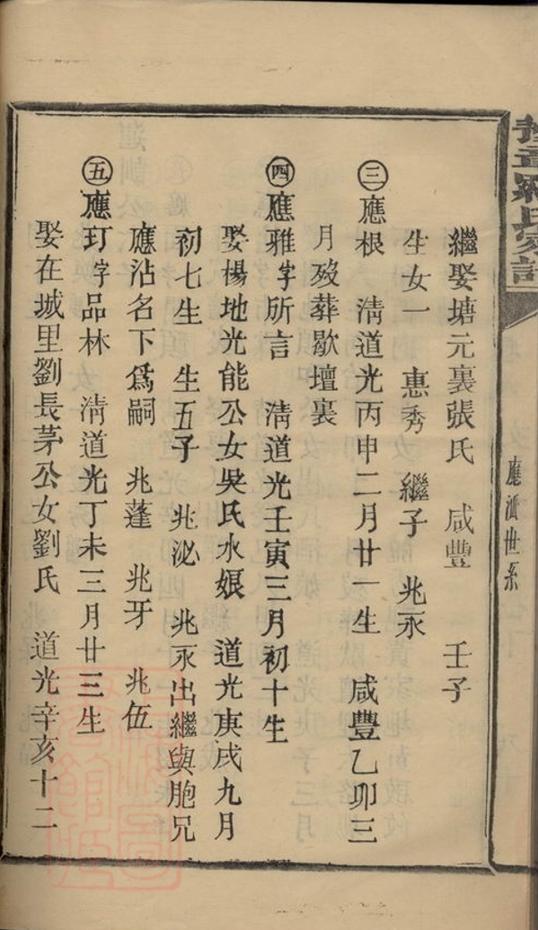 豫章羅氏家譜
應沾世系
繼娶塘元裏張氏 咸豐 壬子
生女一 惠秀 繼子 兆永
㊂應根 淸道光丙申二月廿一生 咸豐乙卯三
月歿葬歇壇裏
㊃應雅字所言 淸道光壬寅三月初十生
娶楊地光能公女吳氏水娘 道光庚戌九月
初七生 生五子 兆泌 兆永出繼與胞兄
應沾名下爲嗣 兆蓬 兆牙 兆伍
㊄應玎字品林 淸道光丁未三月廿三生
娶在城里劉長茅公女劉氏 道光辛亥十二